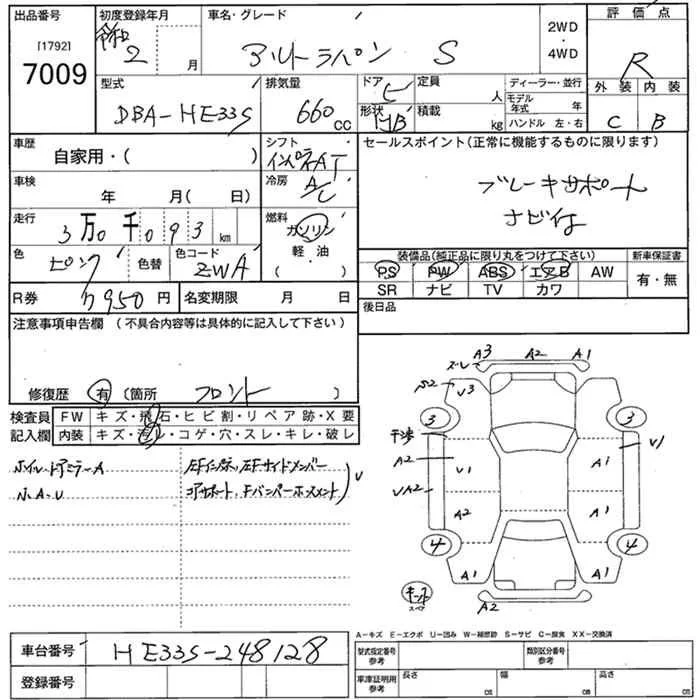 出品番号
[1792]
7009
初度登録年月
令和 2 月
車名・グレード
アルトラパン S
2WD
・
4WD
評価点
R
外装 内装
C B
型式
DBA-HE33S
排気量
660 cc
ドア
形状
HB
定員
人
積載
kg
ディーラー・並行
モデル年式 年
ハンドル 左・右
車歴
自家用・( )
シフト
インパネAT
セールスポイント(正常に機能するものに限ります)
ブレーキサポート
ナビ付
車検
年 月( 日)
冷房
A/C
走行
3万0千093 km
燃料
ガソリン
・
軽・油
( )
色
ピンク
色替
色コード
ZWA
装備品(純正品に限り丸をつけて下さい)
PS PW ABS エアB AW
SR ナビ TV カワ
新車保証書
有・無
R券 7950 円
名変期限 月 日
後日品
注意事項申告欄 (不具合内容等は具体的に記入して下さい)
修復歴 有 (箇所 フロント )
検査員記入欄
FW キズ・飛石・ヒビ割・リペア跡・X要
内装 キズ・汚レ・コゲ・穴・スレ・キレ・破レ
ホイル・ドアミラーA
小A・U
左Fインパネ、左Fサイドメンバー
コアサポート、Fバンパーホースメント
U
ズレ A3 A2 A1
S2 V3
3 3
干渉
A2 V1 A1 V1
VA2 A2 A1
4 4
A1 A1
キット
スペア
A2
A-キズ E-エクボ U-凹み W-補修跡 S-サビ C-腐食 XX-交換済
車台番号 HE33S-248128
登録番号
型式指定番号 参考
類別区分番号 参考
車庫証明用 参考
長さ cm 幅 cm 高さ cm